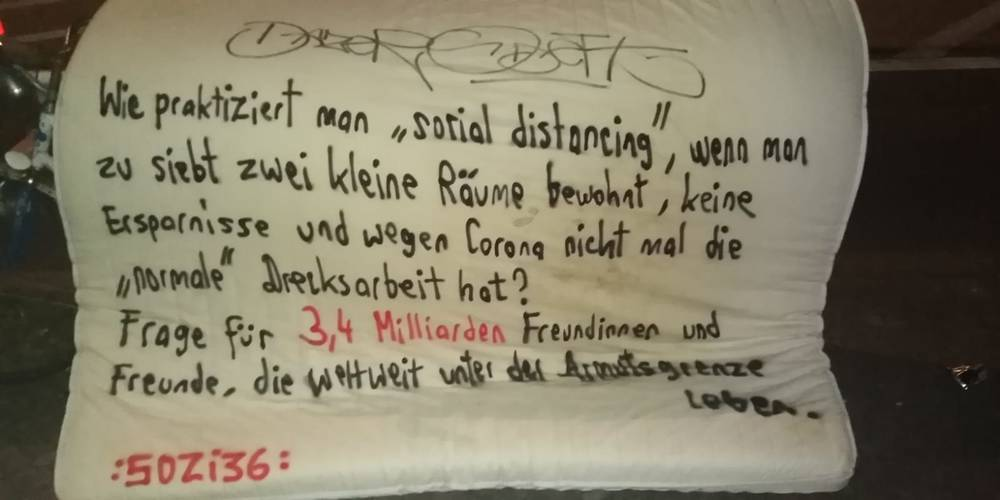 Wie praktiziert man „social distancing", wenn man
zu siebt zwei kleine Räume bewohnt, keine
Ersparnisse und wegen Corona nicht mal die
„normale" Drecksarbeit hat?
Frage für 3,4 Milliarden Freundinnen und
Freunde, die weltweit unter der Armutsgrenze
Leben.
:SOZi36: